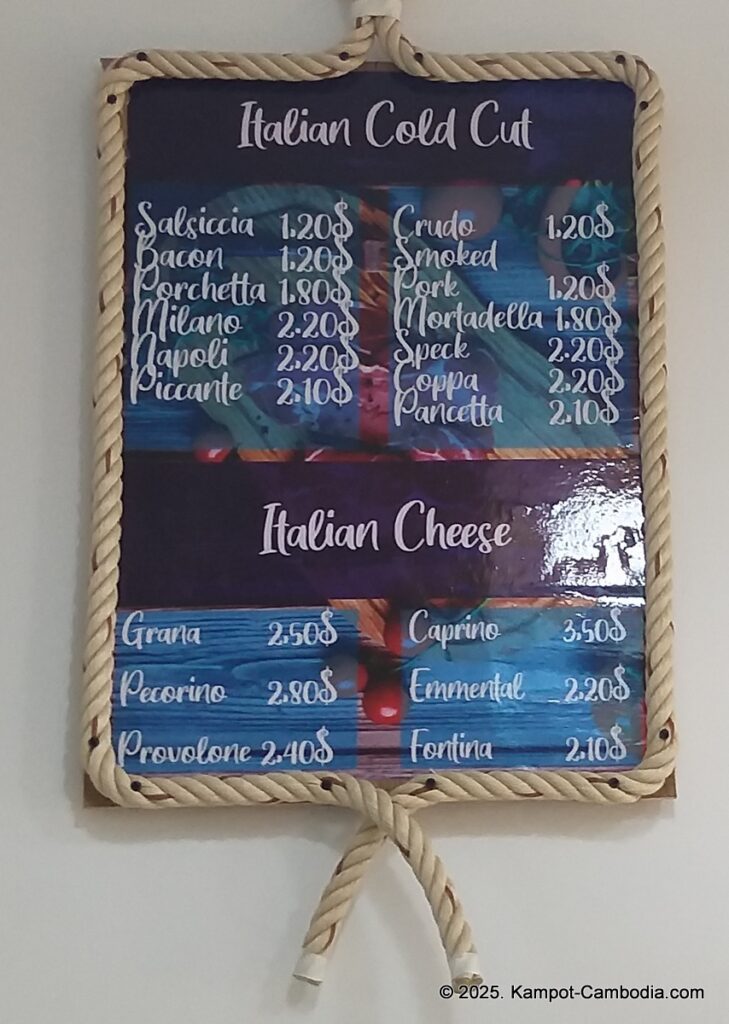 Italian Cold Cut
Salsiccia 1.20$
Bacon 1.20$
Porchetta 1.80$
Milano 2.20$
Napoli 2.20$
Piccante 2.10$
Crudo 1.20$
Smoked
Pork 1.20$
Mortadella 1.80$
Speck 2.20$
Coppa 2.20$
Pancetta 2.10$
Italian Cheese
Grana 2.50$
Pecorino 2.80$
Provolone 2.40$
Caprino 3.50$
Emmental 2.20$
Fontina 2.10$
© 2025. Kampot-Cambodia.com